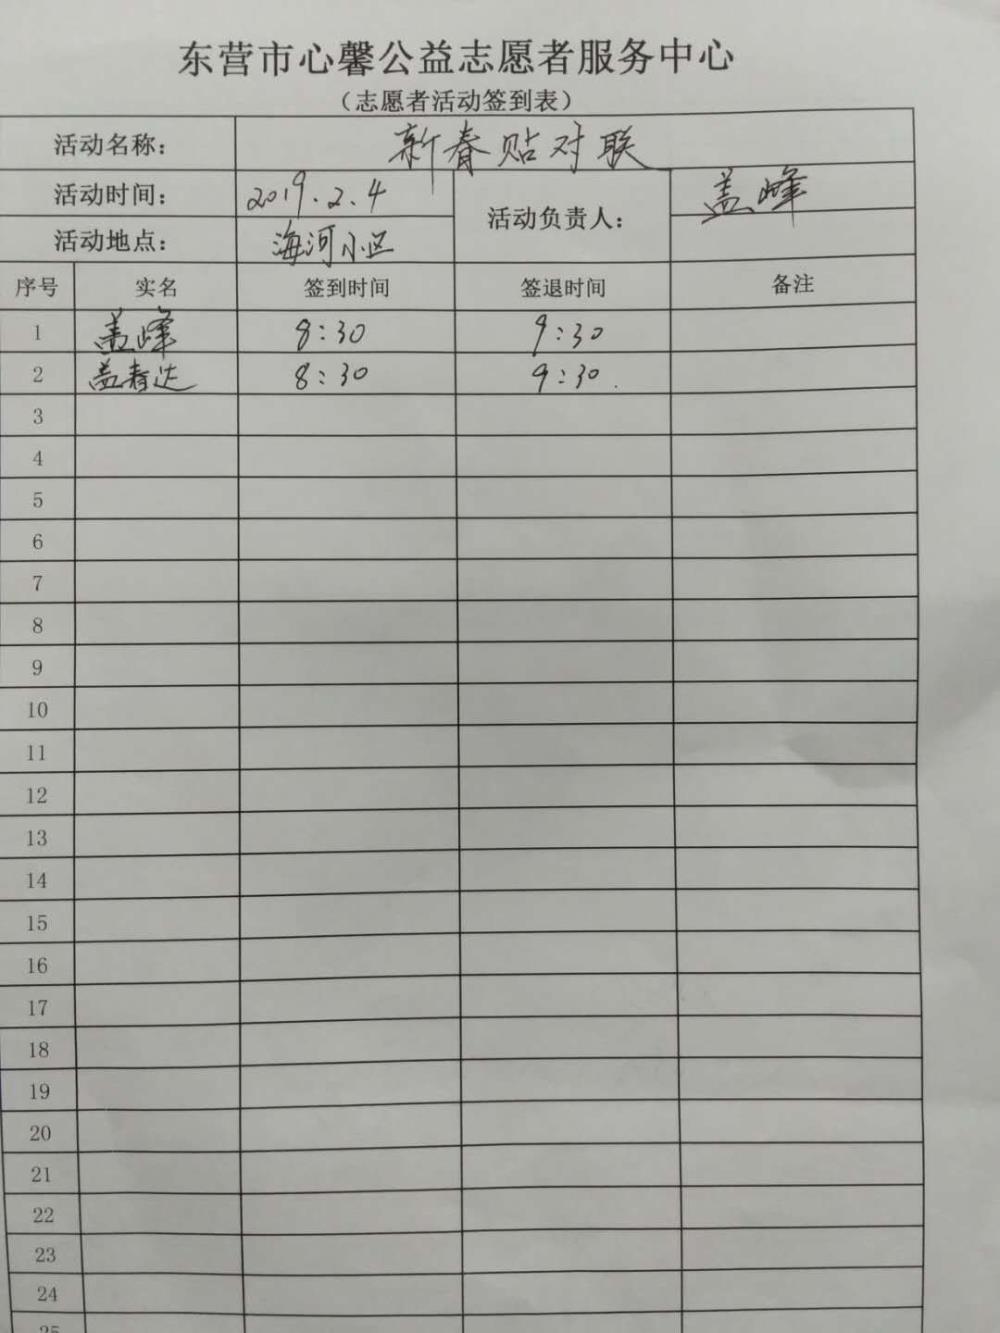 东营市心馨公益志愿者服务中心
（志愿者活动签到表）
活动名称： 新春贴对联
活动时间： 2019.2.4 活动负责人： 盖峰
活动地点： 海河小区
序号 实名 签到时间 签退时间 备注
1 盖峰 8:30 9:30
2 盖春达 8:30 9:30
3
4
5
6
7
8
9
10
11
12
13
14
15
16
17
18
19
20
21
22
23
24
25